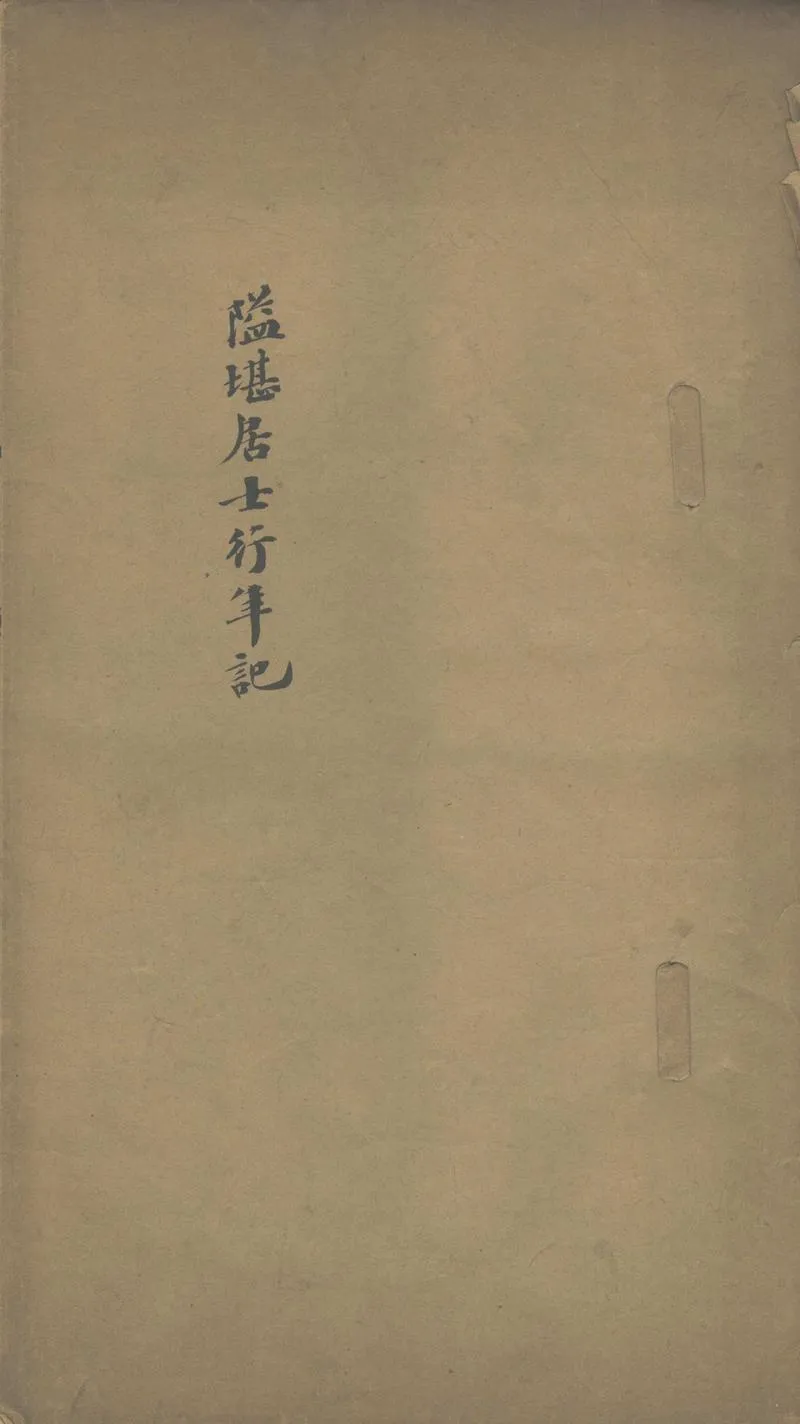 隘堪居士行年記